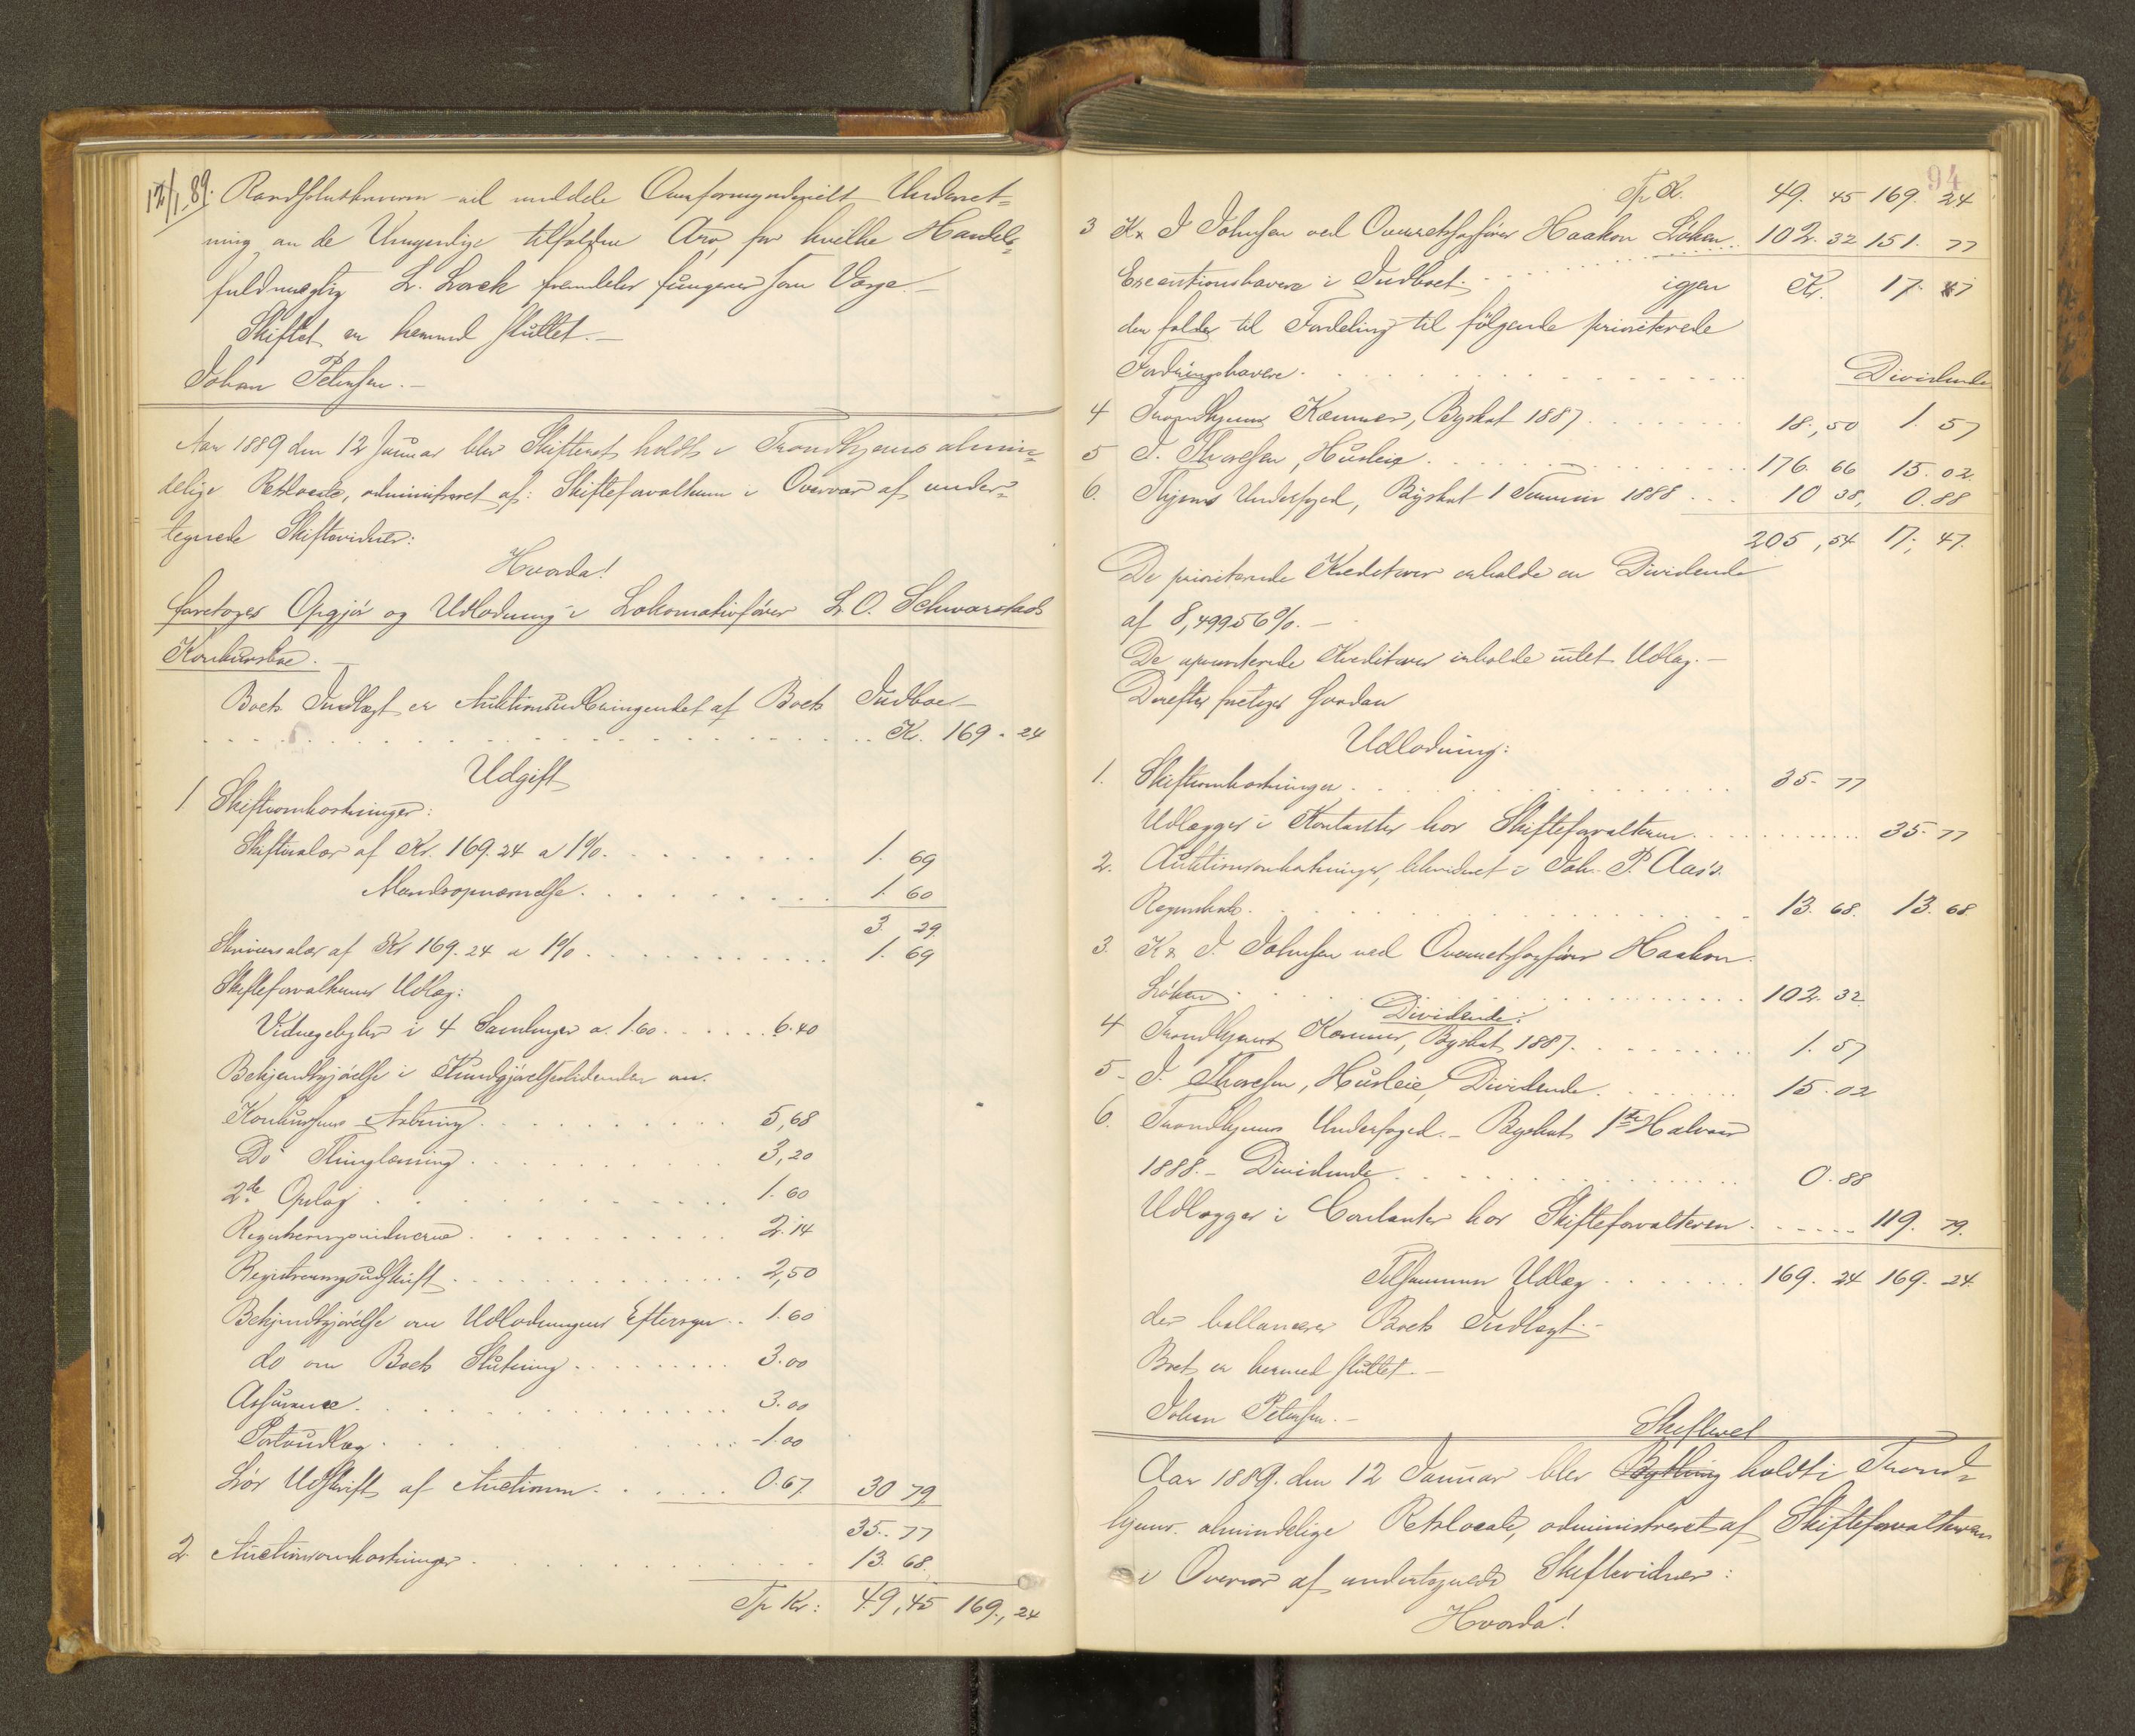 12/1 89. Raadstuskriveren vil meddele Overformynderiet Underret-
ning om de Umyndige tilfaldne Arv, for hvilke Handels-
fuldmægtig L. Lorck fremdeles fungerer som Værge.-
Skiftet er hermed sluttet.-
Johan Petersen.-
Aar 1889 den 12 Januar blev Skifteret holdt i Trondhjems almin-
delige Retslocale, administreret af: Skifteforvalteren i Overvær af under-
tegnede Skiftevidner:
Hvorda!
foretoges Opgjør og Udlodning i Lokomotivfører L. O. Schwarstads
Konkursboe.-
Boets Indtægt er Auktionsudbringendet af Boets Indboe-
Kr. 169.24
Udgift
1 Skifteomkostninger:
Skiftesalær af Kr. 169.24 a 1%. 1.69
Mandsopnævnelse. 1.60
3.29
Skriversalær af Kr 169.24 a 1%. 1.69
Skifteforvalterens Udlæg:
Vidnegebyhr i 4 Samlinger a. 1.60. 6.40
Bekjendtgjørelse i Kundgjørelsestidenden om.
Konkursens Aabning. 5,68
Do Thinglæsning. 3,20
2de Opslag. 1.60
Registreringsvidnerne. 2.14
Registreringsudskrift. 2,50
Bekjendtgjørelse om Udlodningens Eftersyn.. 1.60
do om Boets Slutning. 3.00
Assurance. 3.00
Portoudlæg. 1.00
for Udskrift af Auctionen. 0.67. 30 79.
35.77
2. Auctionsomkostninger. 13.68.
Tp Kr: 49,45 169,24
94
Tp K. 49.45 169.24
3 Kx J Johnsen ved Overretssagfører Haakon Løken.. 102.32 151.77
Executionshavere i Indboet. igjen Kr. 17.47
der falder til Fordeling til følgende prioriterede
Fordringshavere. Dividende
4 Trondhjems Kæmner, Byskat 1887. 18.,50 1.57
5 J. Thoresen, Husleie. 176.66 15.02.
6. Thjems Underfoged, Byskat 1 Termin 1888. 10 38, 0.88
205,54 17,47.
De prioriterede Kreditorer erholde en Dividende
af 8,49956%.-
De uprioriterede Kreditorer erholde intet Udlæg.-
Derefter foretages saadan
Udlodning:
1. Skifteomkostninger. 35.77
Udlægges i Kontanter hos Skifteforvalteren. 35.77
2. Auktionsomkostninger, likvideret i Joh. P. Aas's.
Regnskab. 13.68. 13.68
3. Kx J. Johnsen ved Overretssagfører Haakon.
Løken. 102.32
Dividende:
4 Trondhjems Kæmner, Byskat, 1887. 1.57
5- J. Thoresen, Husleie, Dividende. 15.02
6. Trondhjems Underfoged.- Byskat 1ste Halvaar
1888.- Dividende. 0.88
Udlægges i Contanter hos Skifteforvalteren. 119.79.
Tilsammen Udlæg. 169.24 169.24.
der ballancerer Boets Indtægt.-
Boet er hermed sluttet.-
Johan Petersen.-
Skifteret
Aar 1889. den 12 Januar blev Bything holdt i Trond-
hjems almindelige Retslocale, administreret af Skifteforvalteren
i Overvær af undertegnede Skiftevidner:
Hvorda!